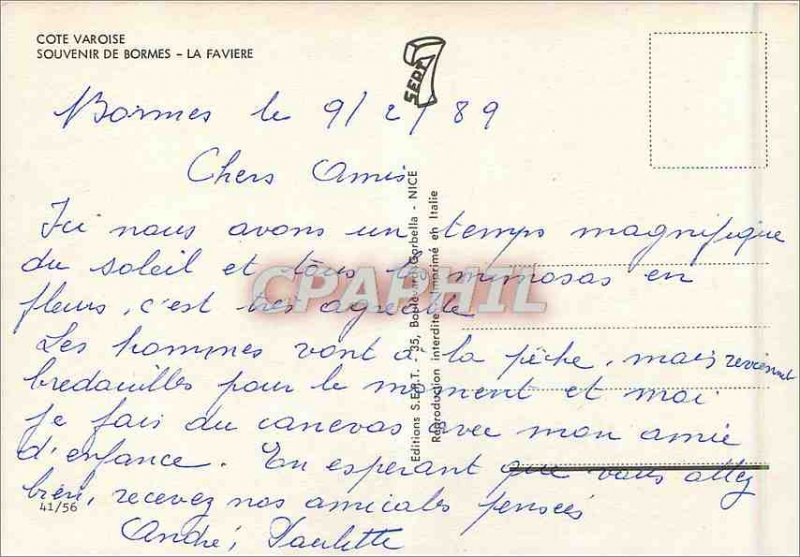 COTE VAROISE
SOUVENIR DE BORMES - LA FAVIERE
SEPT
Bormes le 9/2/89
Chers Amis
Ici nous avons un temps magnifique
du soleil et tous les mimosas en
fleurs, c'est très agréable
Les hommes vont à la pêche, mais reviennent
bredouilles pour le moment et moi
je fais du canevas avec mon amie
d'enfance. En esperant que vous allez
bien, recevez nos amicales pensées
André, Paulette
41/56
Editions S.E.P.T. - 35, Boulevard Gorbella - NICE
Reproduction interdite - Imprimé en Italie
CPAPHIL